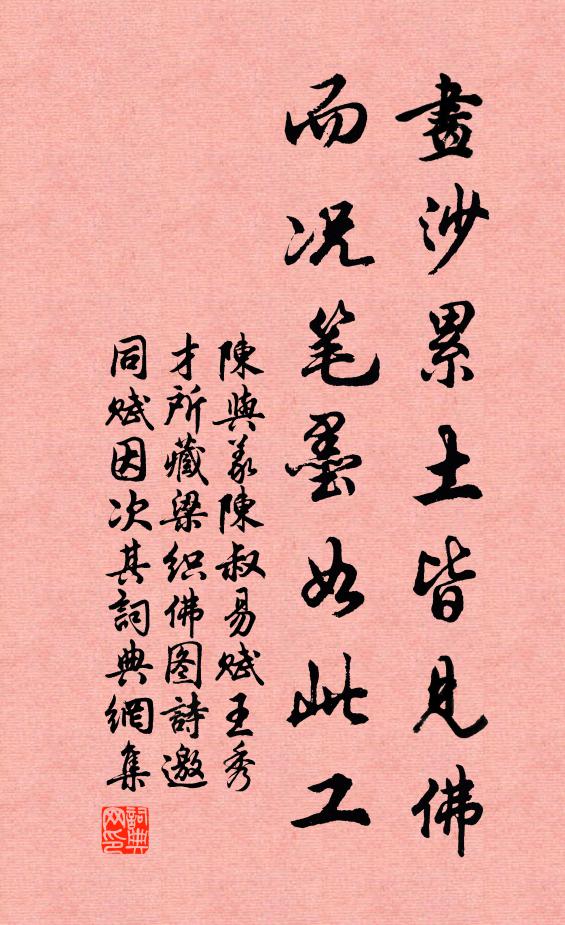 畫沙累土皆見佛
而况笔墨如此工
陳與義陳叔易賦王秀
才所藏梁织佛图詩邀
同賦因次其詞典網集
詞典
网印